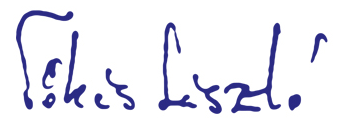 Tőkés László